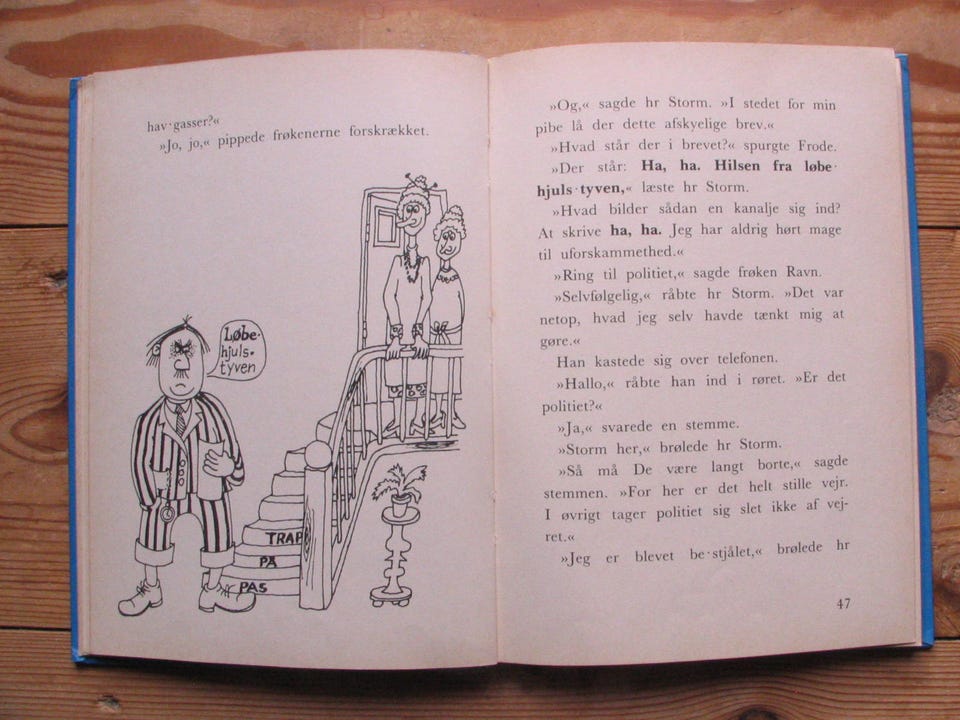 hav·gasser?«
»Jo, jo,« pippede frøkenerne forskrækket.
Løbe-
hjuls-
tyven
TRAP
PÅ
PAS
»Og,« sagde hr Storm. »I stedet for min
pibe lå der dette afskyelige brev.«
»Hvad står der i brevet?« spurgte Frode.
»Der står: Ha, ha. Hilsen fra løbe·
hjuls·tyven,« læste hr Storm.
»Hvad bilder sådan en kanalje sig ind?
At skrive ha, ha. Jeg har aldrig hørt mage
til uforskammethed.«
»Ring til politiet,« sagde frøken Ravn.
»Selvfølgelig,« råbte hr Storm. »Det var
netop, hvad jeg selv havde tænkt mig at
gøre.«
Han kastede sig over telefonen.
»Hallo,« råbte han ind i røret. »Er det
politiet?«
»Ja,« svarede en stemme.
»Storm her,« brølede hr Storm.
»Så må De være langt borte,« sagde
stemmen. »For her er det helt stille vejr.
I øvrigt tager politiet sig slet ikke af vej-
ret.«
»Jeg er blevet be·stjålet,« brølede hr
47